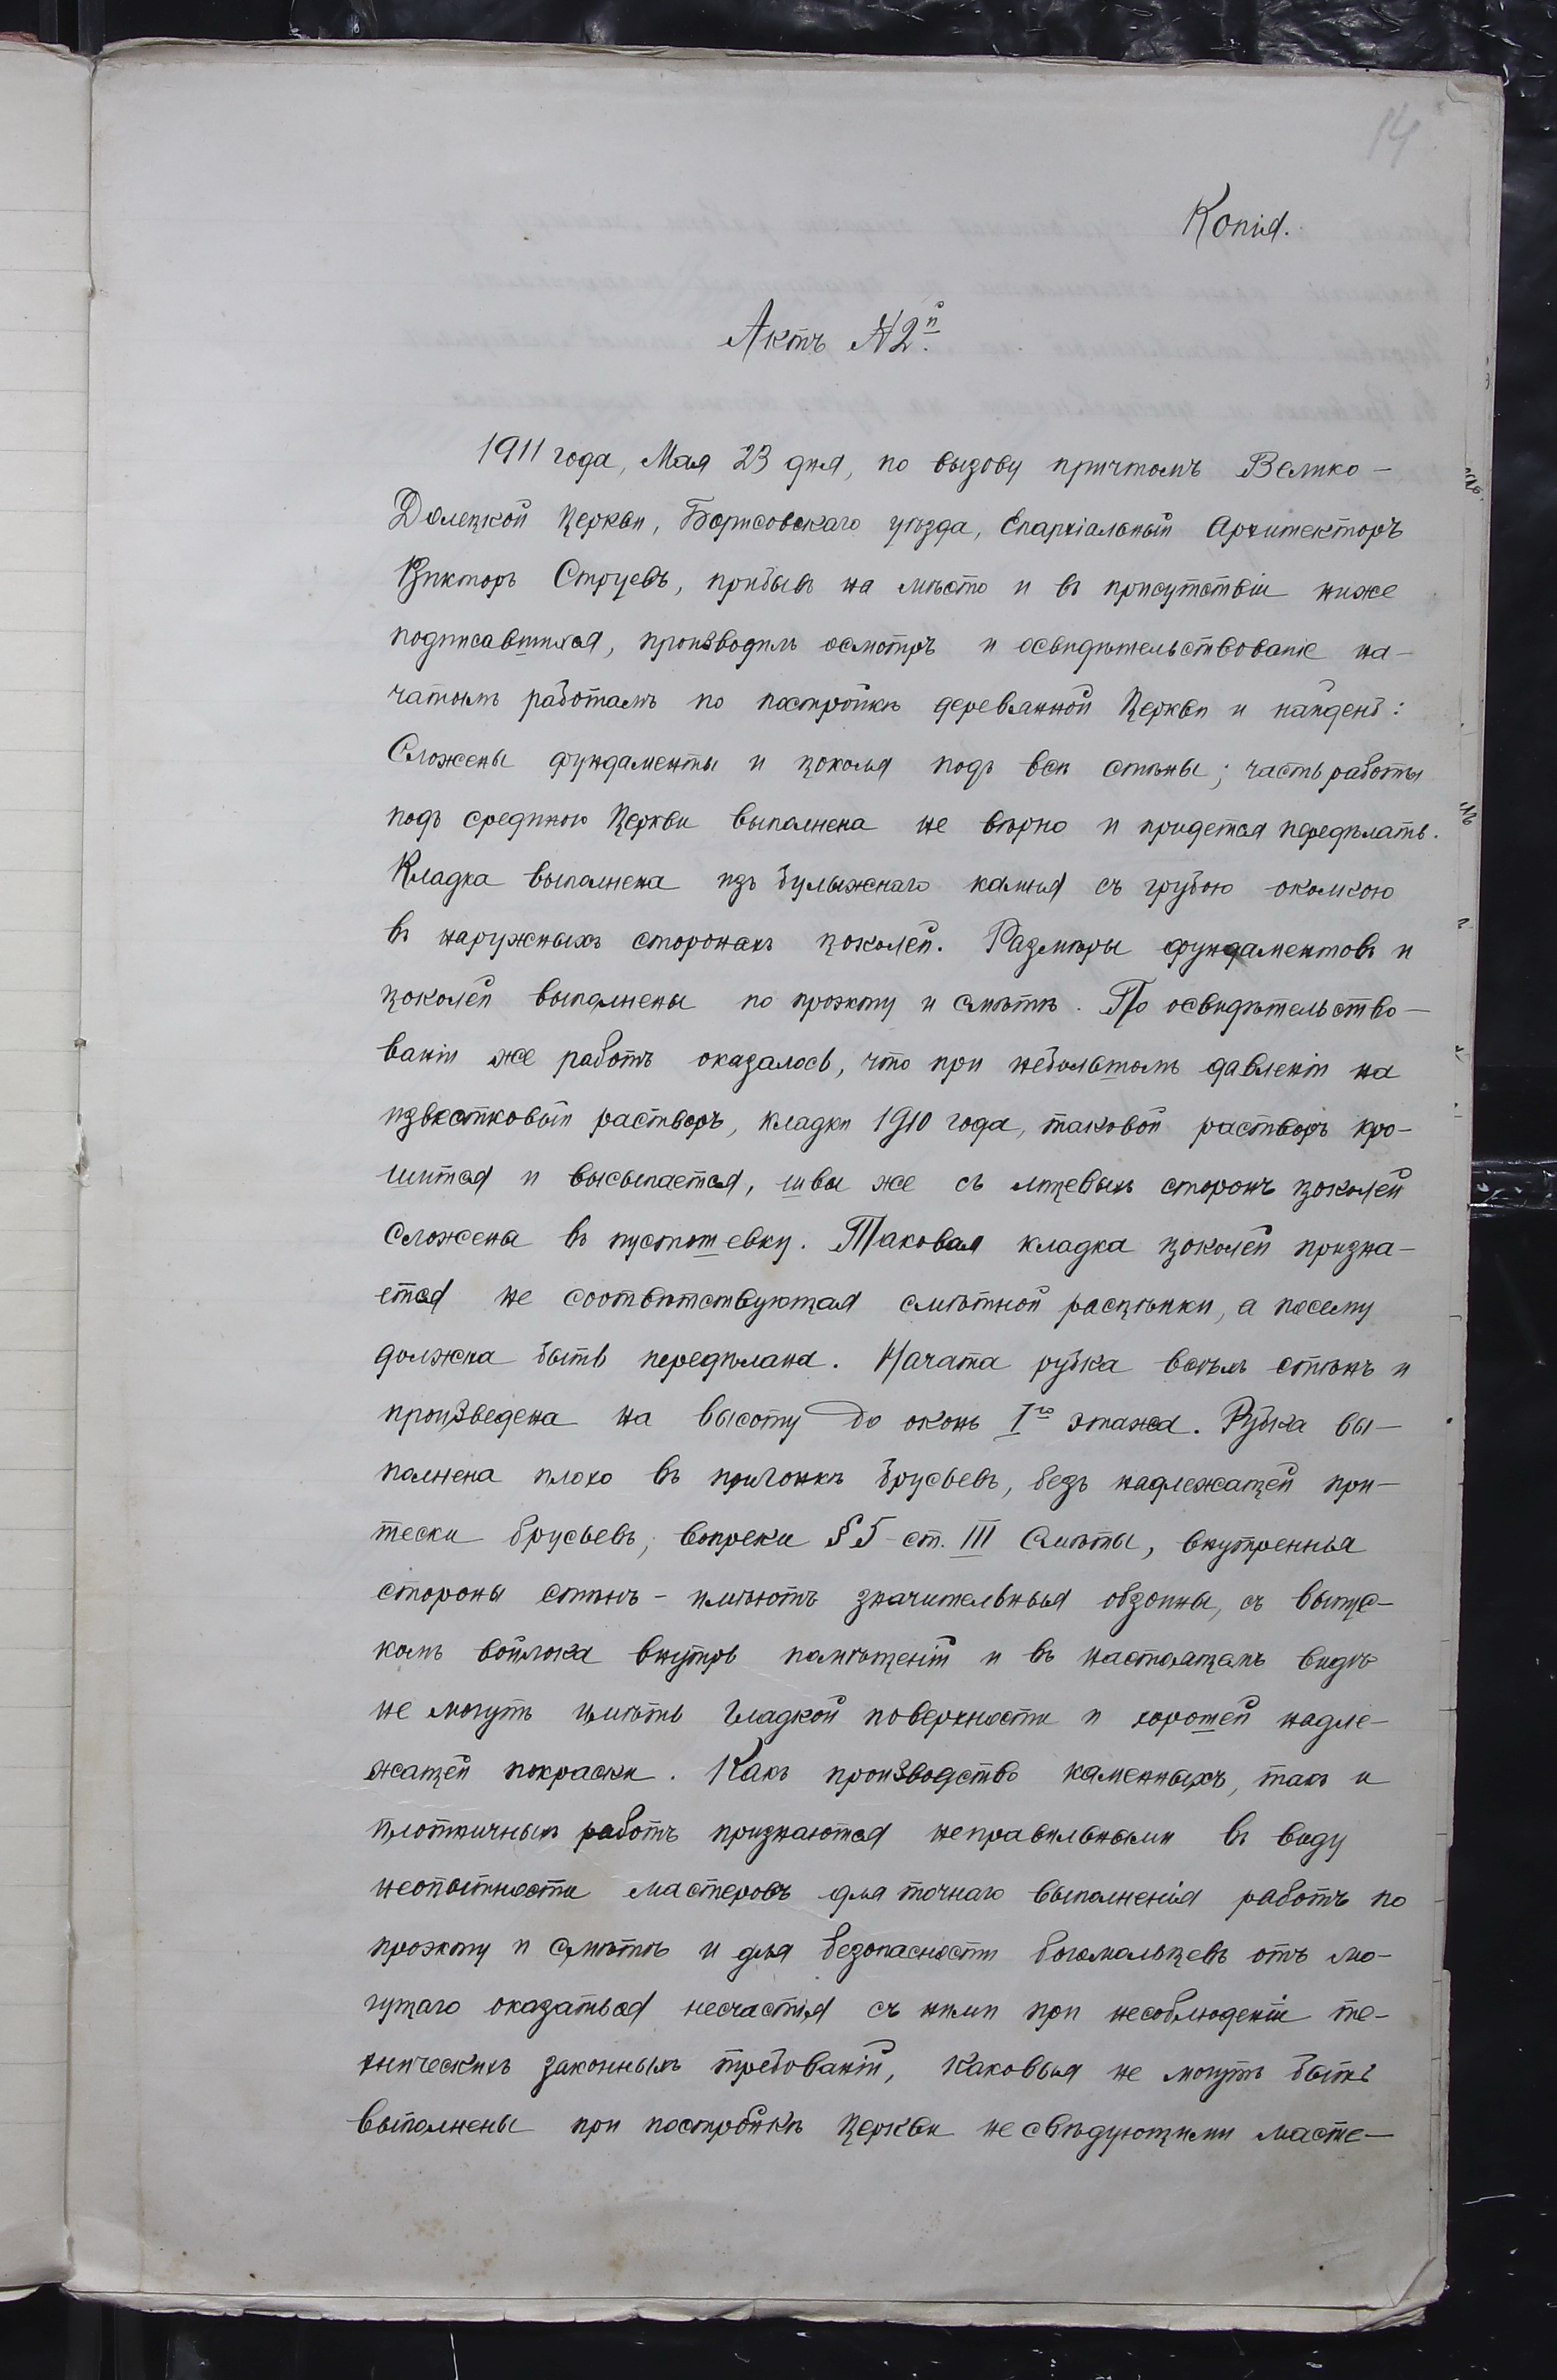 14
Копія.
Актъ №2й.
1911 года, Мая 23 дня, по вызову причтомъ Велико-
Долецкой Церкви, Борисовскаго уѣзда, Епархіальный Архитекторъ
Викторъ Струевъ, прибывъ на мѣсто и въ присутствіи ниже
подписавшихся, производилъ осмотръ и освидѣтельствованіе на-
чатымъ работамъ по постройкѣ деревянной Церкви и найденъ:
Сложены фундаменты и цоколя подъ всѣ стѣны; часть работы
подъ срединою Церкви выполнена не вѣрно и придется передѣлать.
Кладка выполнена изъ булыжнаго камня съ грубою околкою
въ наружныхъ сторонахъ цоколей. Размѣры фундаментовъ и
цоколей выполнены по проэкту и смѣтѣ. По освидѣтельство-
ваніи же работъ оказалось, что при небольшомъ давленіи на
известковый растворъ, кладки 1910 года, таковой растворъ кро-
шится и высыпается, швы же съ лицевыхъ сторонъ цоколей
сложены въ пустошевку. Таковая кладка цоколей призна-
ется не соотвѣтствующая смѣтной расцѣнки, а посему
должна быть передѣлана. Начата рубка всѣхъ стѣнъ и
произведена на высоту до оконъ I го этажа. Рубка вы-
полнена плохо въ пригонкѣ брусьевъ, безъ надлежащей при-
тески брусьевъ, вопреки § 5 ст. III Смѣты, внутреннія
стороны стѣнъ - имѣютъ значительныя обзолины, съ выпус-
комъ войлока внутрь помѣщеній и въ настоящемъ видѣ
не могутъ имѣть гладкой поверхности и хорошей надле-
жащей покраски. Какъ производство каменныхъ, такъ и
плотничныхъ работъ признаются неправильными въ виду
неопытности мастеровъ для точнаго выполненія работъ по
проэкту и смѣтѣ и для безопасности богомольцевъ отъ мо-
гущаго оказаться несчастія съ ними при несоблюденіи те-
хническихъ законныхъ требованій, каковыя не могутъ быть
выполнены при постройкѣ Церкви не свѣдующими масте-